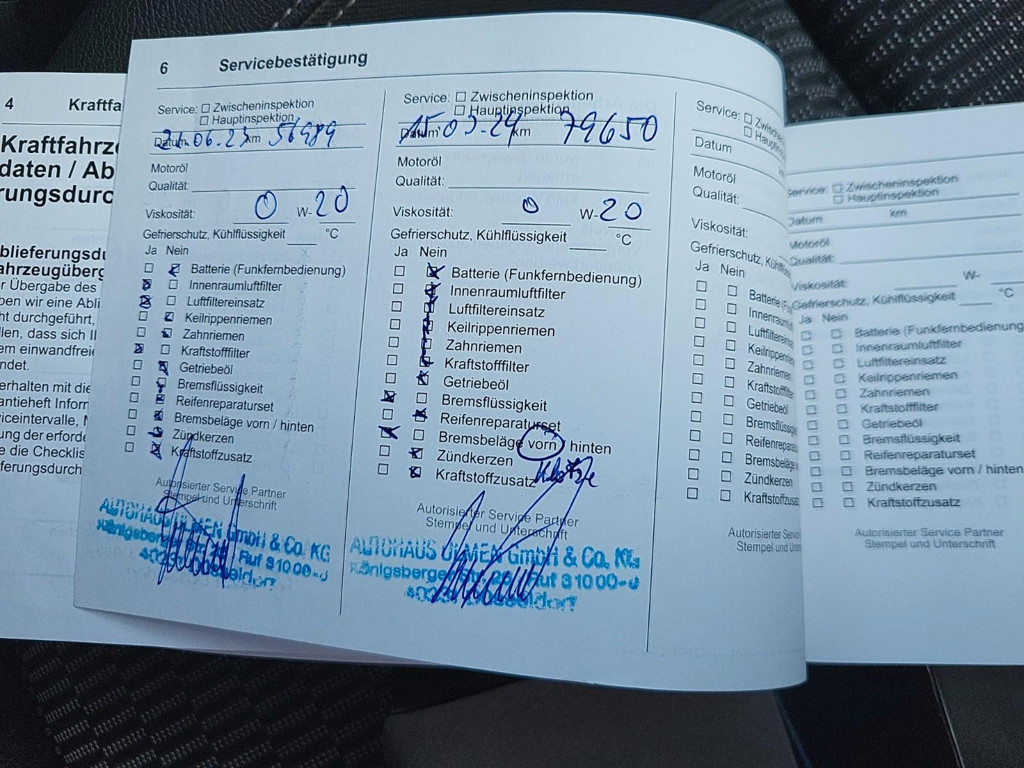 4 Kraftfa
Kraftfahrze
daten / Ab
rungsdurc
blieferungsdu
ahrzeugüberg
r Übergabe des
ben wir eine Abli
ht durchgeführt,
llen, dass sich II
em einwandfreie
ndet.
erhalten mit die
antieheft Inform
viceintervalle, M
ung der erforde
e die Checklis
ferungsdurch
6 Servicebestätigung
Service: ☐ Zwischeninspektion
☐ Hauptinspektion
Datum 06.23 km 56989
Motoröl
Qualität:
Viskosität: 0 W-20
Gefrierschutz, Kühlflüssigkeit °C
Ja Nein
Batterie (Funkfernbedienung)
Innenraumluftfilter
Luftfiltereinsatz
Keilrippenriemen
Zahnriemen
Kraftstofffilter
Getriebeöl
Bremsflüssigkeit
Reifenreparaturset
Bremsbeläge vorn / hinten
Zündkerzen
Kraftstoffzusatz
Autorisierter Service Partner
Stempel und Unterschrift
AUTOHAUS ULMEN GmbH & Co. KG
Königsberger Str. Ruf 31000-0
Düsseldorf
Service: ☐ Zwischeninspektion
☐ Hauptinspektion
Datum 15.03.24 km 79650
Motoröl
Qualität:
Viskosität: 0 W-20
Gefrierschutz, Kühlflüssigkeit °C
Ja Nein
Batterie (Funkfernbedienung)
Innenraumluftfilter
Luftfiltereinsatz
Keilrippenriemen
Zahnriemen
Kraftstofffilter
Getriebeöl
Bremsflüssigkeit
Reifenreparaturset
Bremsbeläge vorn / hinten
Zündkerzen
Kraftstoffzusatz
Autorisierter Service Partner
Stempel und Unterschrift
AUTOHAUS ULMEN GmbH & Co. KG
Königsberger Str. Ruf 31000-0
Düsseldorf
Service: ☐ Zwische
☐ Haupti
Datum
Motoröl
Qualität:
Viskosität:
Gefrierschutz, Kühl
Ja Nein
Batterie (F
Innenraum
Luftfilterein
Keilrippenrie
Zahnriemen
Kraftstofffil
Getriebeöl
Bremsflüssig
Reifenrepara
Bremsbeläge
Zündkerzen
Kraftstoffzusa
Autorisierter Servic
Stempel und Uns
ervice: ☐ Zwischeninspektion
☐ Hauptinspektion
Datum km
Motoröl
Qualität:
Viskosität: W-
Gefrierschutz, Kühlflüssigkeit °C
Ja Nein
Batterie (Funkfernbedienung
Innenraumluftfilter
Luftfiltereinsatz
Keilrippenriemen
Zahnriemen
Kraftstofffilter
Getriebeöl
Bremsflüssigkeit
Reifenreparaturset
Bremsbeläge vorn / hinten
Zündkerzen
Kraftstoffzusatz
Autorisierter Service Partner
Stempel und Unterschrift